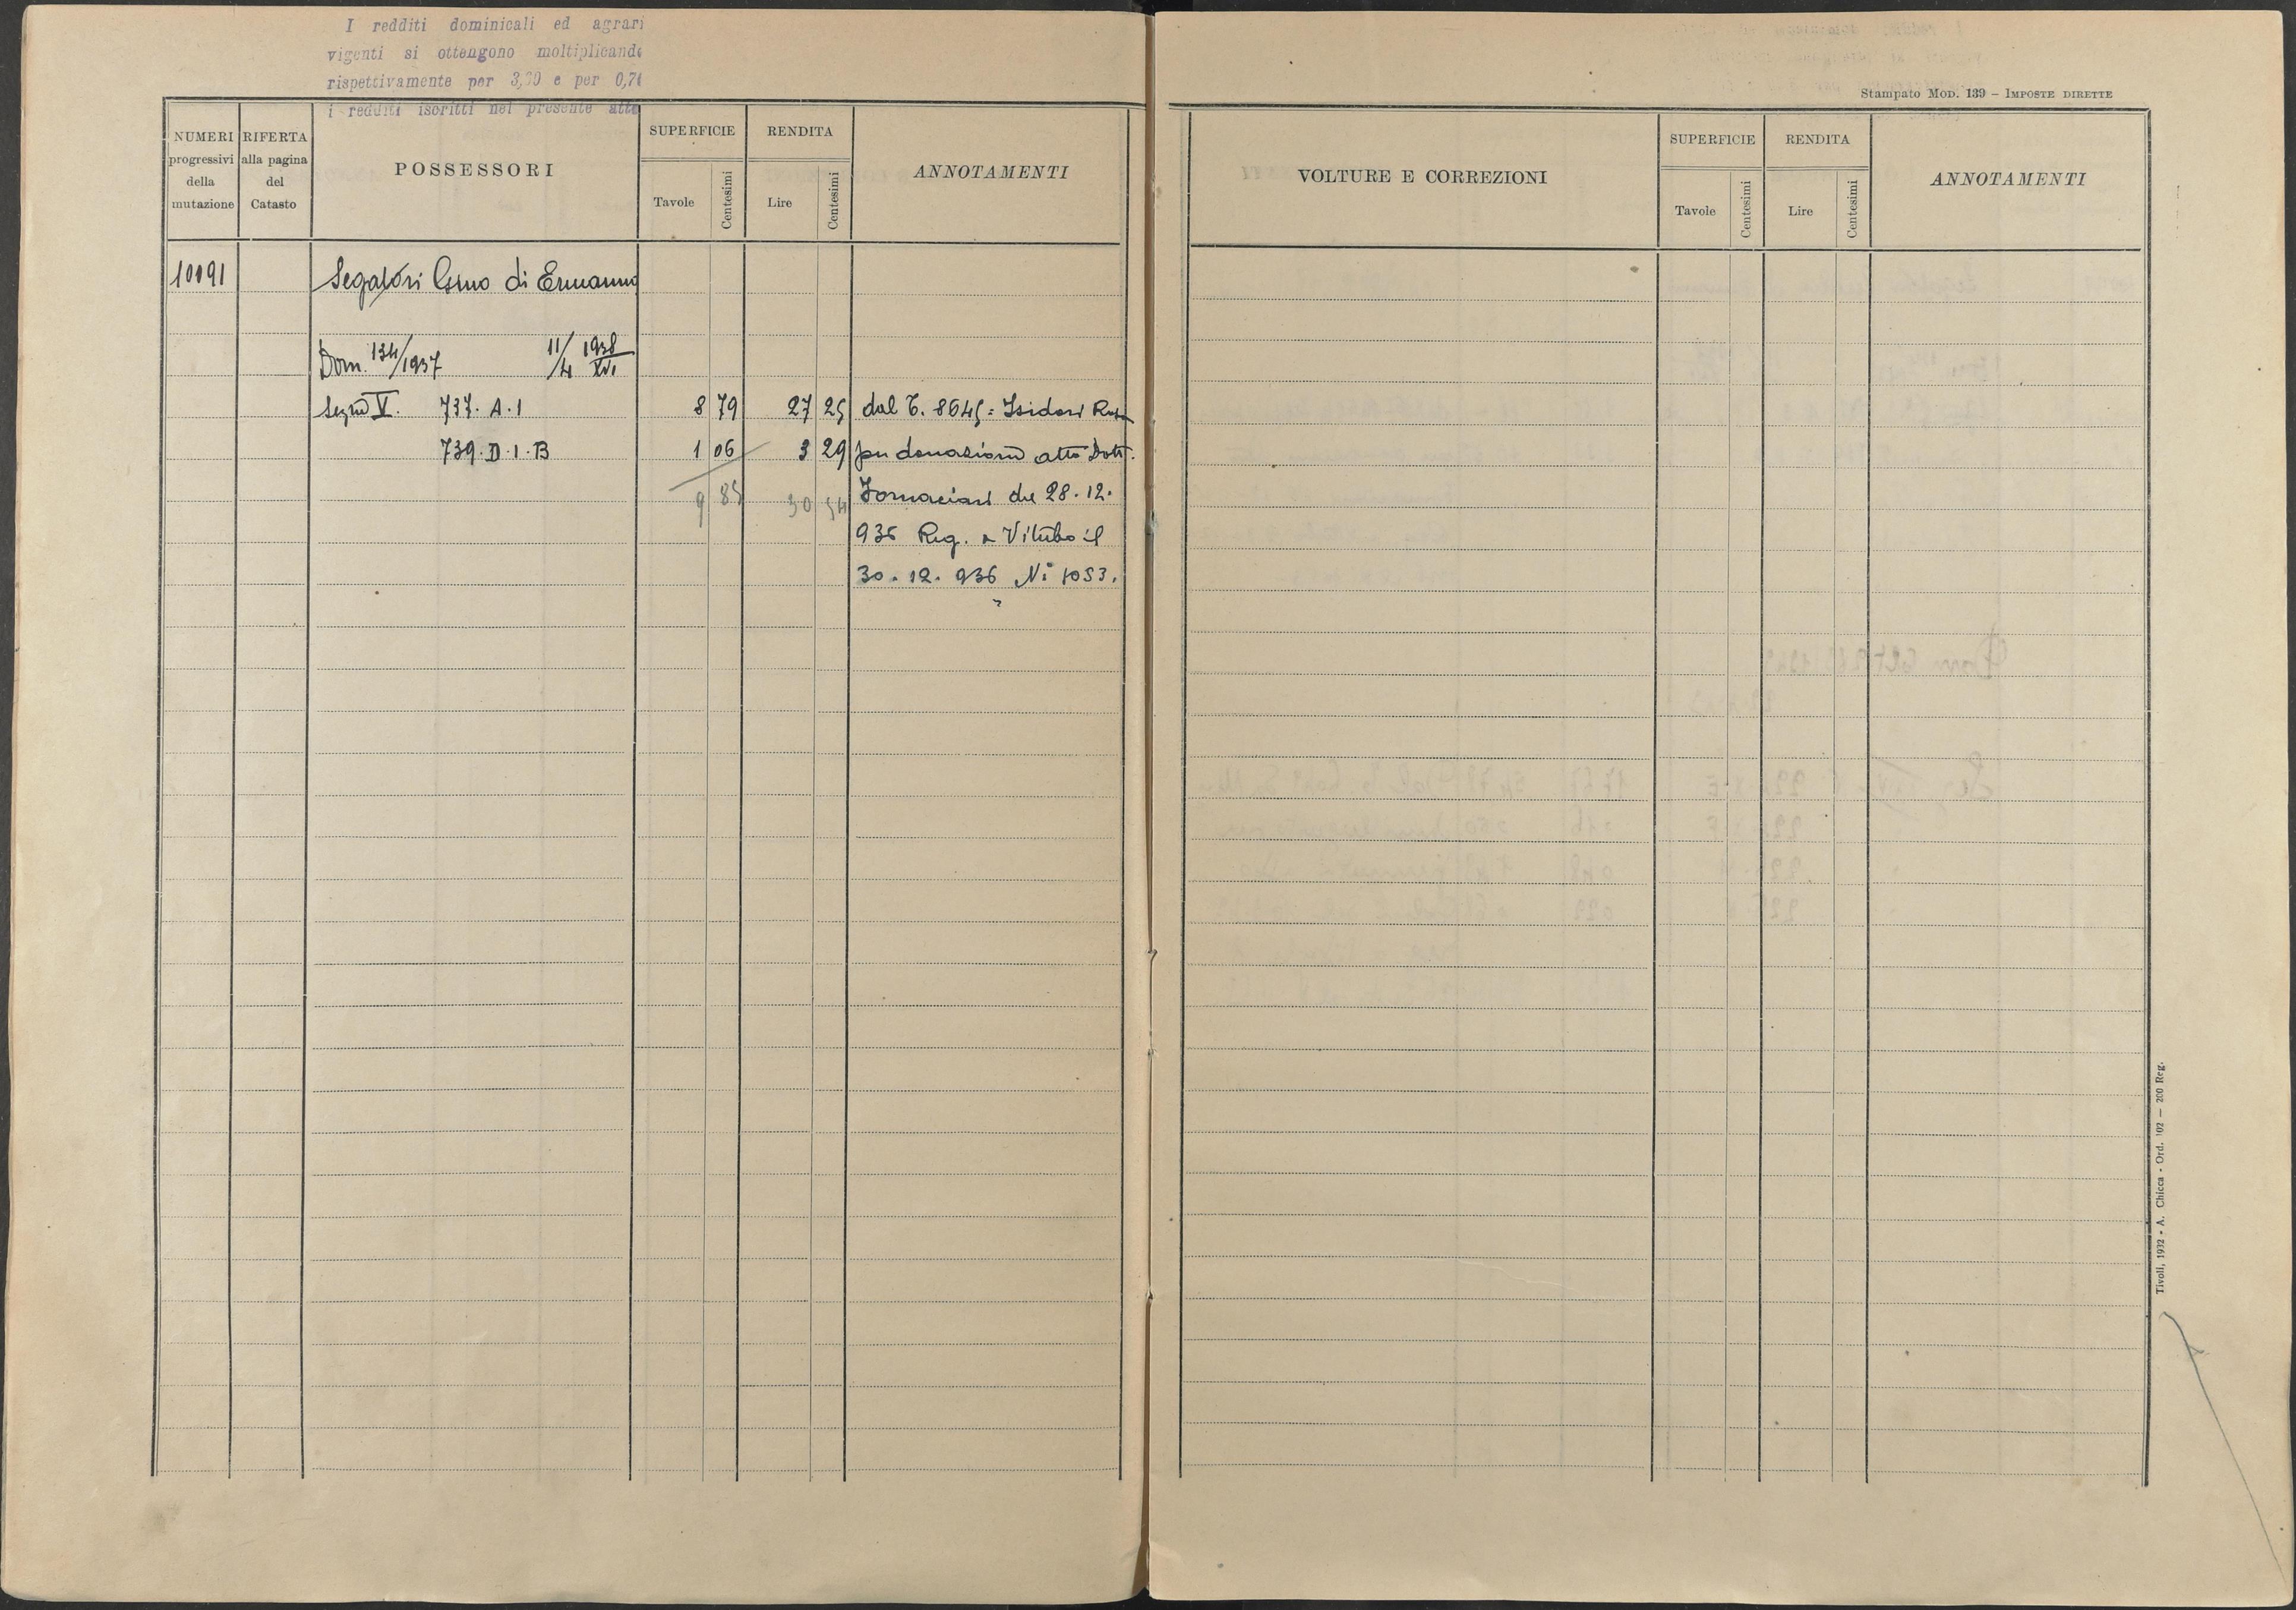 I redditi dominicali ed agrari
vigenti si ottengono moltiplicando
rispettivamente per 3,30 e per 0,70
i redditi iscritti nel presente atto
NUMERI progressivi della mutazione
RIFERTA alla pagina del Catasto
POSSESSORI
SUPERFICIE
Tavole
Centesimi
RENDITA
Lire
Centesimi
ANNOTAMENTI
10091
Segatori di Ermanno
Dom. 134/1937 11/4 1938 XVI
Segni V. 737. A. 1 8 79 27 25 dal T. 8645 = Isidori Rosa
739. D. 1. B 1 06 3 29 per donazione atto Dott.
9 85 30 54 Fornaciari del 28. 12.
936 Reg. a Viterbo il
30. 12. 936 N: 1053.
Stampato MOD. 139 – IMPOSTE DIRETTE
VOLTURE E CORREZIONI
SUPERFICIE
Tavole
Centesimi
RENDITA
Lire
Centesimi
ANNOTAMENTI
Tivoli, 1932 - A. Chicca - Ord. 102 — 200 Reg.